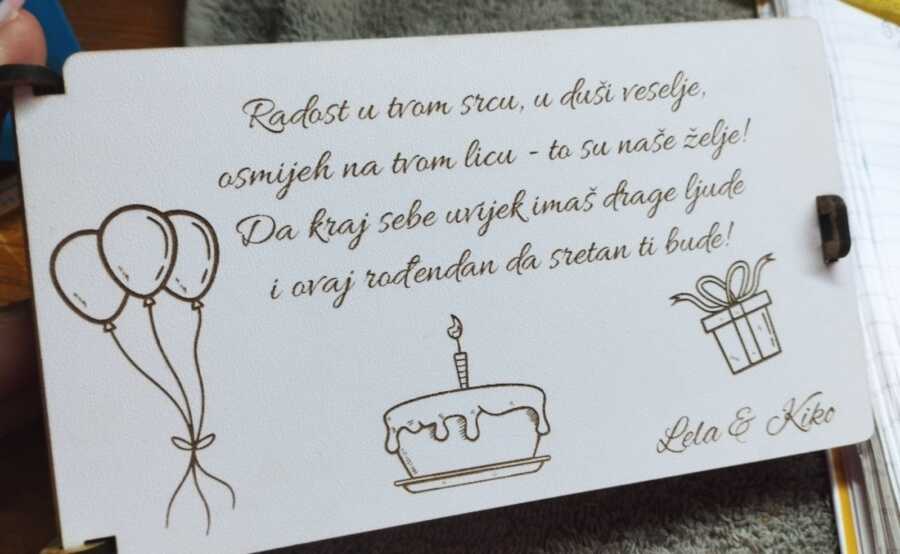 Radost u tvom srcu, u duši veselje,
osmijeh na tvom licu - to su naše želje!
Da kraj sebe uvijek imaš drage ljude
i ovaj rođendan da sretan ti bude!
Lela & Kiko